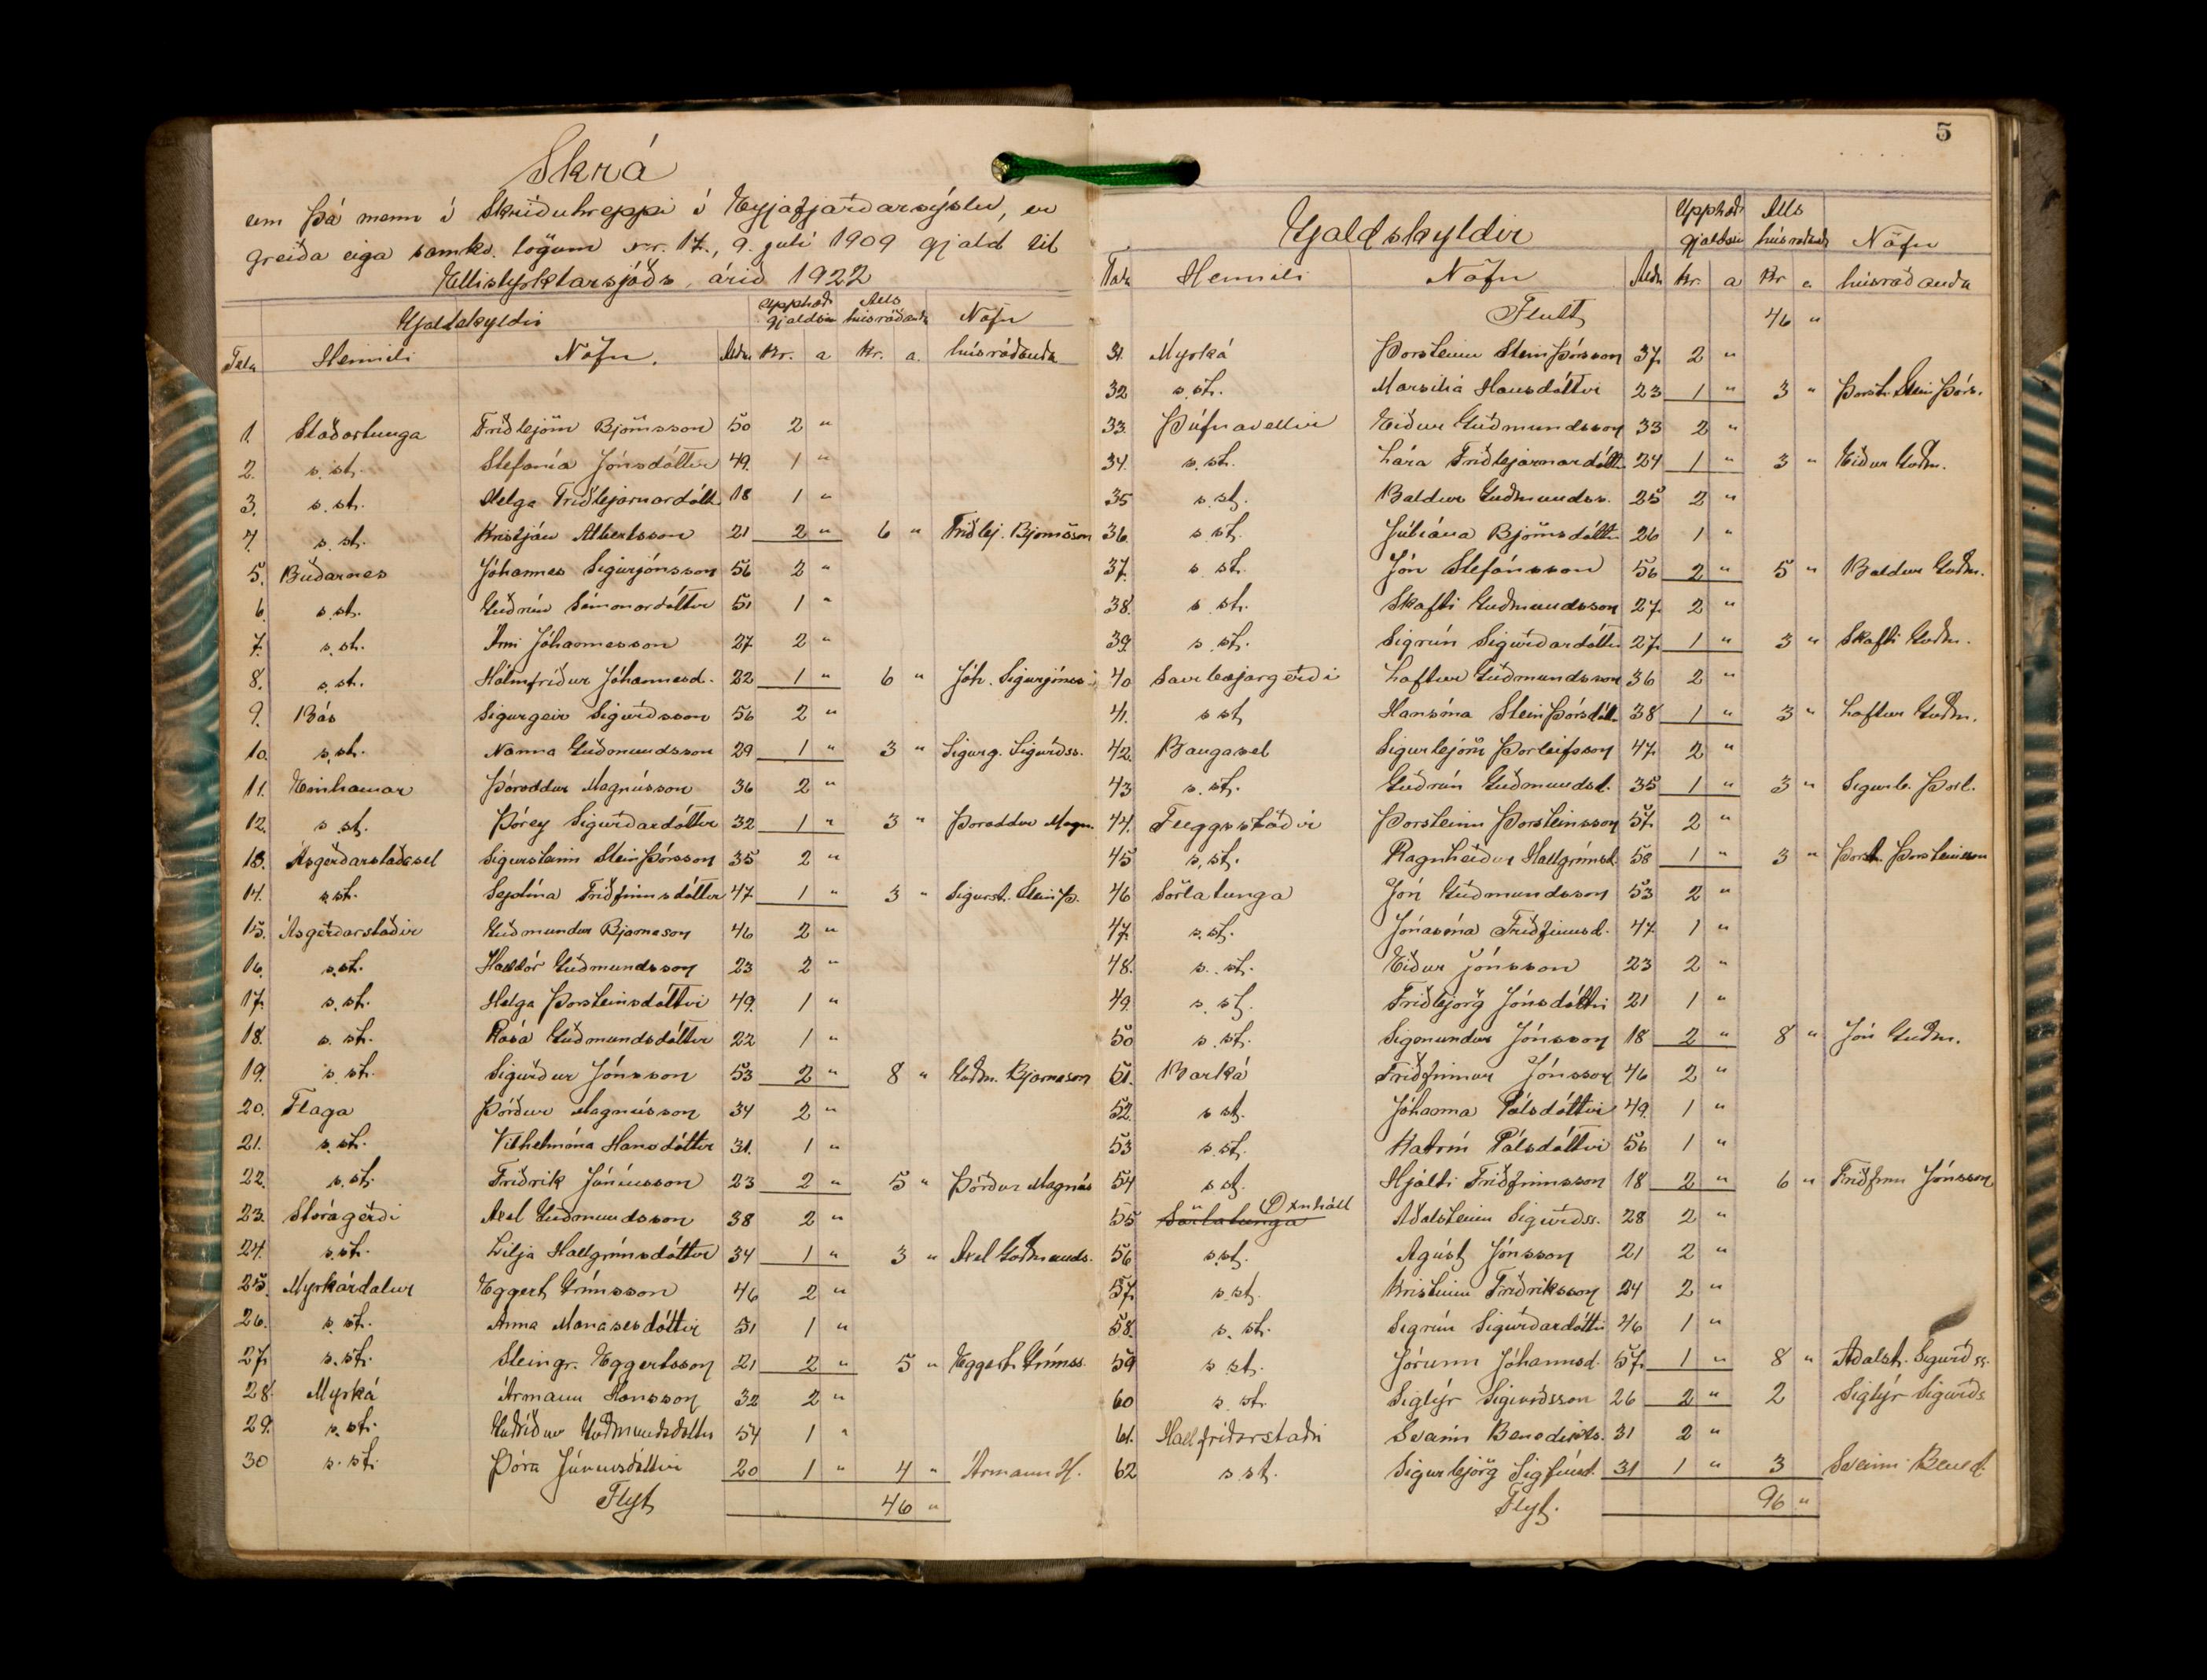 Skrá
um þá menn í Skriðuhreppi í Eyjafjarðarsýslu, er
greiða eiga samkv. lögum nr. 17., 9. júlí 1909 gjald til
Ellistyrktarsjóðs, árið 1922
Gjaldskyldir Upphæð gjaldsin Alls húsráðanda Nöfn
Tala Heimili Nöfn. Aldur Kr. a Kr. a. húsráðanda
1. Staðartunga Friðbjörn Björnsson 50 2 "
2. s.st. Stefanía Jónsdóttir 49. 1 "
3. s.st. Helga Friðbjarnardótt. 18 1 "
4. s.st. Kristján Albertsson 21 2 " 6 " Friðbj. Björnsson
5. Búðarnes Jóhannes Sigurjónsson 56 2 "
6. s.st. Guðrún Símonardóttir 51 1 "
7. s.st. Árni Jóhannesson 27 2 "
8. s.st. Hólmfríður Jóhannesd. 22 1 " 6 " Jóh. Sigurjónss
9. Bás Sigurgeir Sigurðsson 56 2 "
10. s.st. Nanna Guðmundsson 29 1 " 3 " Sigurg. Sigurðss.
11. Einhamar Þóroddur Magnússon 36 2 "
12. s.st. Þórey Sigurðardóttir 32 1 " 3 " Þóroddur Magn.
13. Ásgerðarstaðasel Sigursteinn Steinþórsson 35 2 "
14. s.st. Septína Friðfinnsdóttir 47 1 " 3 " Sigurst. Steinþ.
15. Ásgerðarstaðir Guðmundur Bjarnason 46 2 "
16. s.st. Halldór Guðmundsson 23 2 "
17. s.st. Helga Þorsteinsdóttir 49. 1 "
18. s.st. Rósa Guðmundsdóttir 22 1 "
19. s.st. Sigurður Jónsson 53 2 " 8 " Guðm. Bjarnason
20. Flaga Þórður Magnússon 34 2 "
21. s.st. Vilhelmína Hansdóttir 31. 1 "
22. s.st. Friðrik Júníusson 23 2 " 5 " Þórður Magnús
23. Stóragerði Axel Guðmundsson 38 2 "
24. s.st. Lilja Hallgrímsdóttir 34 1 " 3 " Axel Guðmunds.
25. Myrkárdalur Eggert Grímsson 46 2 "
26. s.st. Anna Manasesdóttir 51 1 "
27. s.st. Steingr. Eggertsson 21 2 " 5 " Eggert Grímss.
28. Myrká Ármann Hansson 32 2 "
29. s.st. Guðríður Guðmundsdóttir 54 1 "
30 s.st. Þóra Júníusdóttir 20 1 " 4 " Ármann H.
Flyt 46 "
5
Gjaldskyldir Upphæð gjaldsin Alls húsráðanda Nöfn
Tala Heimili Nöfn Aldur Kr. a Kr a húsráðanda
Flutt 46 "
31. Myrká Þorsteinn Steinþórsson 37. 2 "
32 s.st. Marsilía Hansdóttir 23 1 " 3 " Þorst. Steinþórs.
33. Þúfnavellir Eiður Guðmundsson 33 2 "
34. s.st. Lára Friðbjarnardótt. 24 1 " 3 " Eiður Guðm.
35 s.st. Baldur Guðmundss. 25 2 "
36. s.st. Júlíana Björnsdóttir 26 1 "
37. s.st. Jón Stefánsson 56 2 " 5 " Baldur Guðm.
38. s.st. Skafti Guðmundsson 27. 2 "
39. s.st. Sigrún Sigurðardóttir 27. 1 " 3 " Skafti Guðm.
40 Saurbæjargerði Loftur Guðmundsson 36 2 "
41. s.st. Hansína Steinþórsdótt. 38 1 " 3 " Loftur Guðm.
42. Baugasel Sigurbjörn Þorleifsson 47. 2 "
43 s.st. Guðrún Guðmundsd. 35 1 " 3 " Sigurb. Þorl.
44. Flöggustaðir Þorsteinn Þorsteinsson 57. 2 "
45 s.st. Ragnheiður Hallgrímsd. 58 1 " 3 " Þorst. Þorsteinsson
46 Sörlatunga Jón Guðmundsson 53 2 "
47. s.st. Jónasína Friðfinnsd. 47. 1 "
48. s.st. Eiður Jónsson 23 2 "
49. s.st. Friðbjörg Jónsdóttir 21 1 "
50 s.st. Sigmundur Jónsson 18 2 " 8 " Jón Guðm.
51. Barká Friðfinnur Jónsson 46 2 "
52. s.st. Jóhanna Pálsdóttir 49. 1 "
53 s.st. Katrín Pálsdóttir 56 1 "
54 s.st. Hjalti Friðfinnsson 18 2 " 6 " Friðfinn Jónsson
55 Sörlatunga Öxnhóll Aðalsteinn Sigurðss. 28 2 "
56 s.st. Ágúst Jónsson 21 2 "
57. s.st. Kristinn Friðriksson 24 2 "
58. s.st. Sigrún Sigurðardóttir 46 1 "
59 s.st. Jórunn Jóhannsd. 57. 1 " 8 " Aðalst. Sigurðss.
60 s.st. Sigtýr Sigurðsson 26 2 " 2 Sigtýr Sigurðs.
61. Hallfríðarstaðir Sveinn Benedikts. 31 2 "
62 s.st. Sigurbjörg Sigfúsd. 31 1 " 3 Sveinn Bened.
Flyt. 96 "